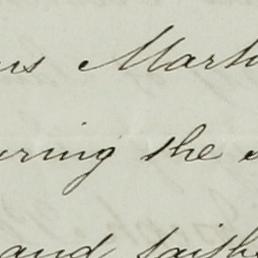 us Marti
uring the
and faith